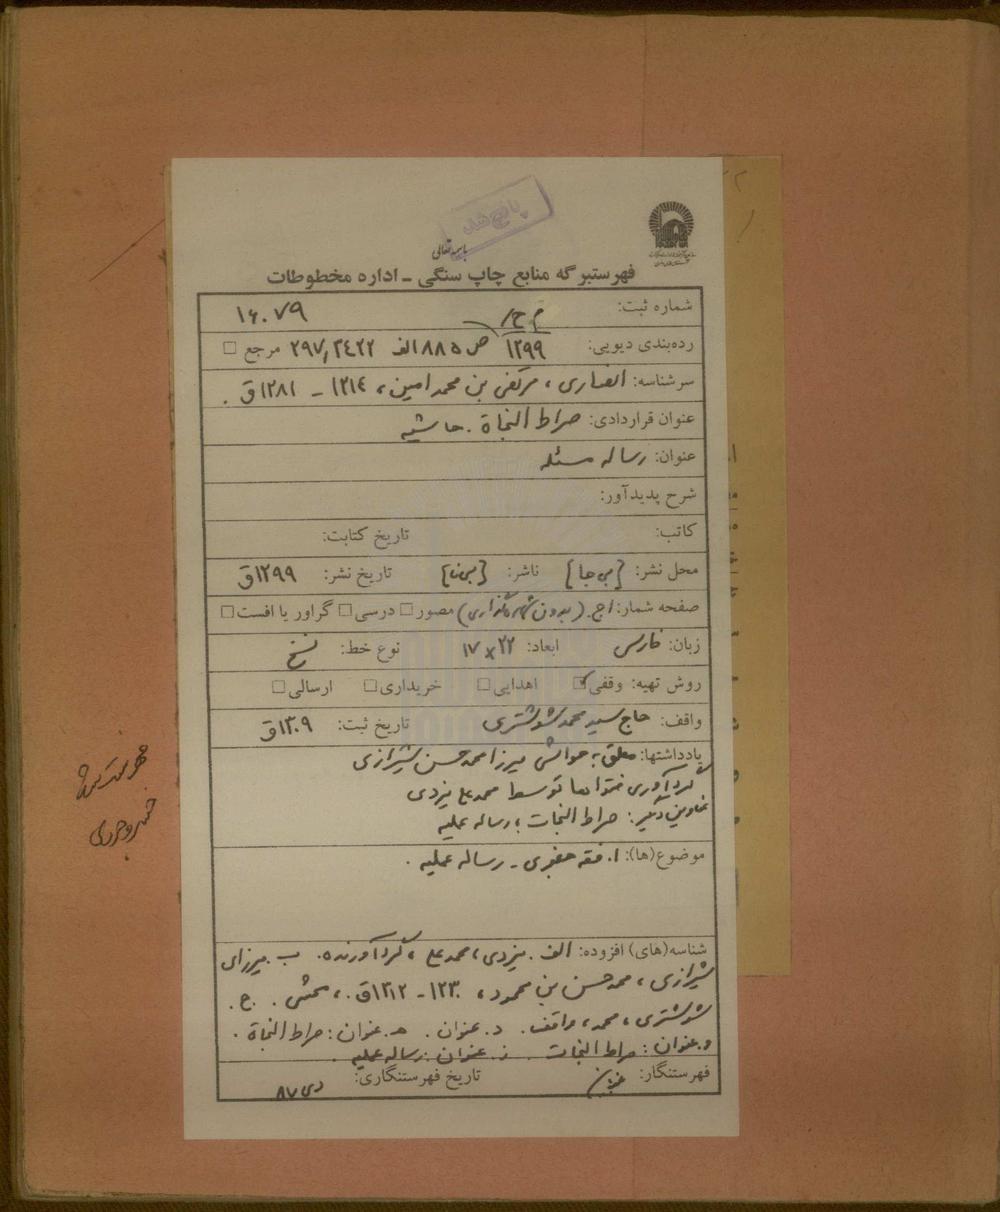 باسمه تعالی
فهرستبرگه منابع چاپ سنگی ـ اداره مخطوطات
شماره ثبت: ۱۶۰۷۹
رده‌بندی دیویی: ۲۹۷/۳۴۲۲ الف ۸۸۵ ص ۱۲۹۹ مرجع □
سرشناسه: انصاری، مرتضی بن محمدامین، ۱۲۱۴ - ۱۲۸۱ق.
عنوان قراردادی: صراط النجاة. حاشیه
عنوان: رساله مسئله
شرح پدیدآور:
کاتب: تاریخ کتابت:
محل نشر: [بی‌جا] ناشر: [بی‌نا] تاریخ نشر: ۱۲۹۹ق
صفحه شمار: ۱ج. (بدون شماره‌گذاری) مصور □ درسی □ گراور یا افست □
زبان: فارسی ابعاد: ۲۲×۱۷ نوع خط: نسخ
روش تهیه: وقفی ☑ اهدایی □ خریداری □ ارسالی □
واقف: حاج سید محمد شوشتری تاریخ ثبت: ۱۳۰۹ق
یادداشتها: معلق به حواشی میرزا محمدحسن شیرازی
گردآوری فتواها توسط محمدعلی یزدی
عناوین دیگر: صراط النجات؛ رساله عملیه
موضوع(ها): ۱. فقه جعفری ـ رساله عملیه.
شناسه(های) افزوده: الف. یزدی، محمدعلی، گردآورنده. ب. میرزای
شیرازی، محمدحسن بن محمود، ۱۲۳۰ - ۱۳۱۲ق.، محشی. ج.
شوشتری، محمد، واقف. د. عنوان. ه. عنوان: صراط النجاة.
و. عنوان: صراط النجات. ز. عنوان: رساله عملیه.
فهرستنگار: تاریخ فهرستنگاری: دی ۸۷
فهرست شد